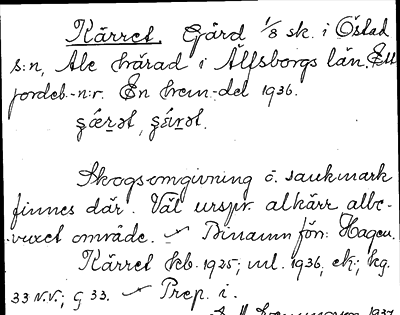 Kärret. Gård 1/8 sk. i Östad
s:n, Ale härad i Älfsborgs län. Ett
jordeb.-n:r. En hem.-del 1936.
Skogsomgivning o. sankmark
finnes där. Väl urspr. alkärr albe-
vuxet område. Binamn för: Hagen.
Kärret hb. 1925; ml. 1936, ek; kg.
33 N.V.; G 33. Prep. i.
1937